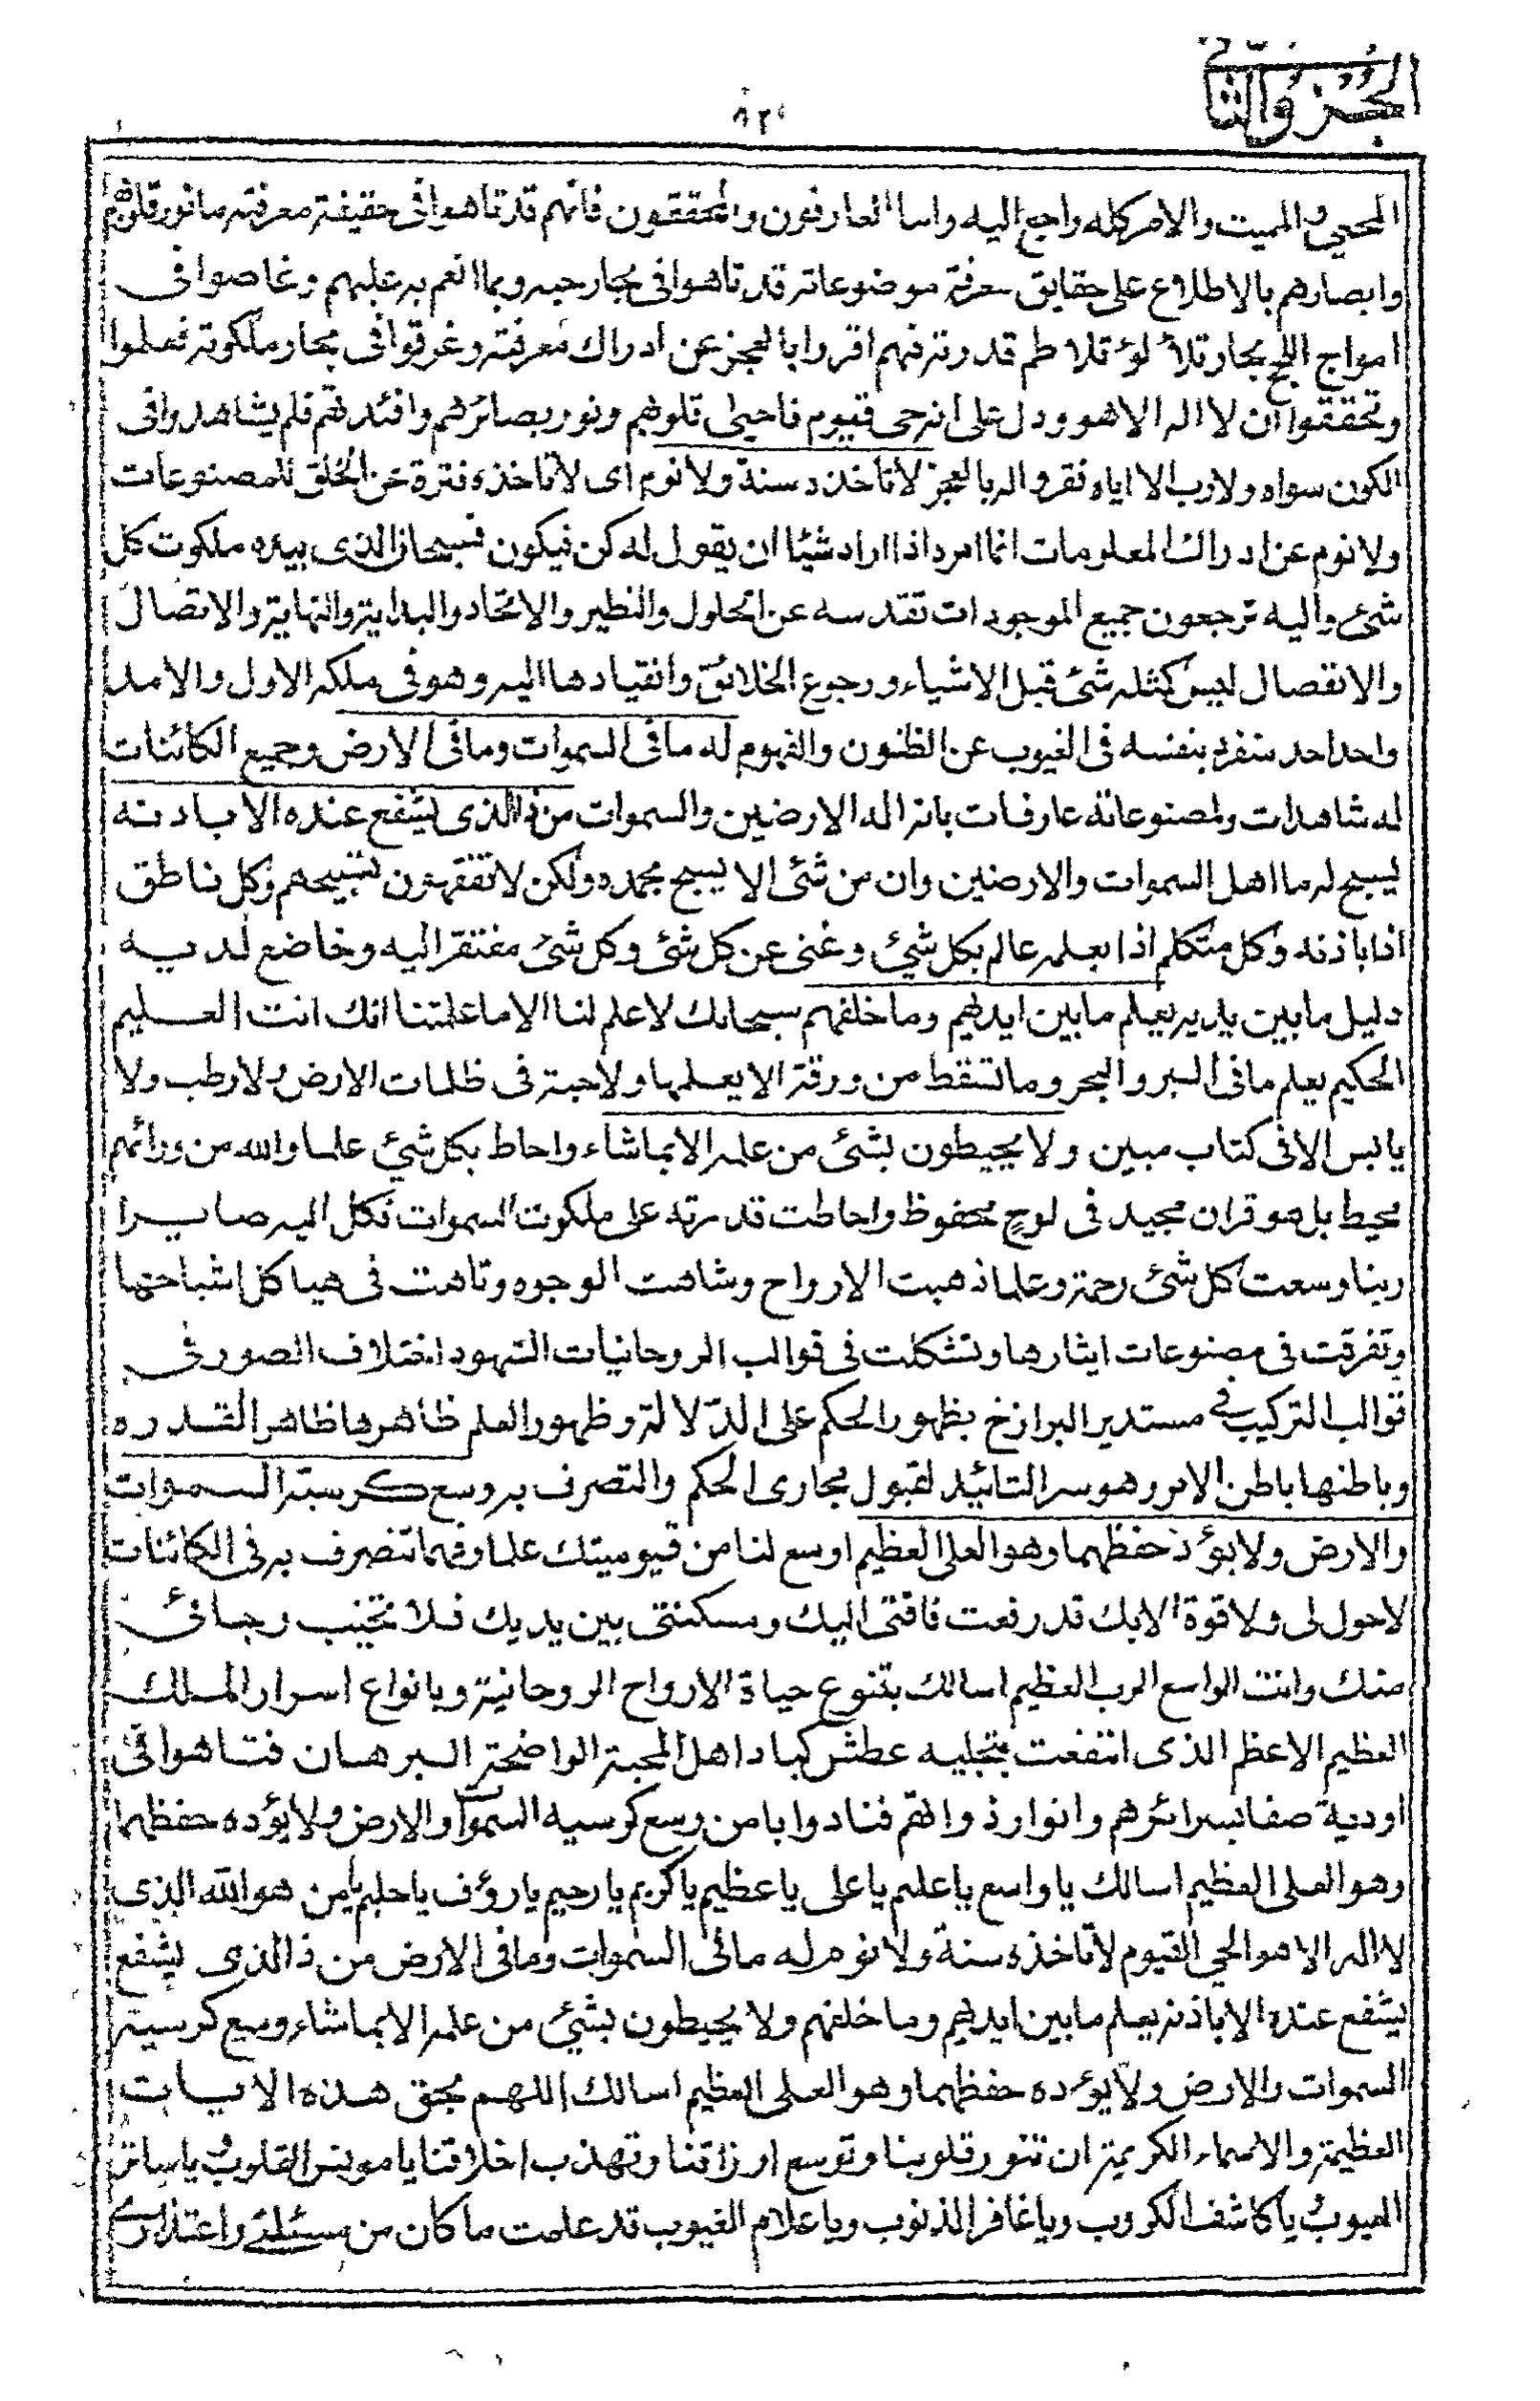 الجزؤ الثاني
٨٢
المحيي والمميت والامر كله راجع اليه واما العارفون والمحققون فانهم قد تاهوا فى حقيقة معرفته مانور قلوبهم
وابصارهم بالاطلاع على حقايق معرفة موضوعاته قد تاهوا فى بحار حبه وبما انعم به عليهم وغاصوا فى
امواج اللجج بحار تلألؤ تلاطم قدرته فهم اقروا بالعجز عن ادراك معرفته وغرقوا فى بحار ملكوته فعلموا
وتحققوا ان لا اله الا هو ودل على انه حى قيوم فاحيى قلوبهم ونور بصائرهم وافئدتهم فلم يشاهدوا فى
الكون سواه ولا رب الا اياه نقروا له بالعجز لا تأخذه سنة ولا نوم اى لا تاخذه فترة عن الخلق للمصنوعات
ولا نوم عن ادراك المعلومات انما امره اذا اراد شيئا ان يقول له كن فيكون فسبحان الذى بيده ملكوت كل
شئ واليه ترجعون جميع الموجودات تقدسه عن الحلول والنظير والاتحاد والبداية والنهاية والاتصال
والانفصال ليس كمثله شئ قبل الاشياء ورجوع الخلائق وانقيادها اليه وهو فى ملكه الاول والامد
واحد احد منفرد بنفسه فى الغيوب عن الظنون والفهوم له ما فى السموات وما فى الارض وجميع الكائنات
له شاهدات ولمصنوعاته عارفات بانه اله الارضين والسموات من ذا الذى يشفع عنده الا باذنه
يسبح له ما اهل السموات والارضين وان من شئ الا يسبح بحمده ولكن لا تفقهون تسبيحهم وكل ناطق
اذا باذنه وكل متكلم اذا بعلمه عالم بكل شيئ وغنى عن كل شئ وكل شئ مفتقر اليه وخاضع لديه
دليل ما بين يديه يعلم ما بين ايديهم وما خلفهم سبحانك لا علم لنا الا ما علمتنا انك انت العليم
الحكيم يعلم ما فى البر والبحر وما تسقط من ورقة الا يعلمها ولا حبة فى ظلمات الارض ولا رطب ولا
يابس الا فى كتاب مبين ولا يحيطون بشئ من علمه الا بما شاء واحاط بكل شيئ علما والله من ورائهم
محيط بل هو قران مجيد فى لوح محفوظ واحاطت قدرته على ملكوت السموات فكل اليه صايرا
ربنا وسعت كل شئ رحمة وعلما ذهبت الارواح وشاهت الوجوه وتاهت فى هياكل اشباحها
وتفرقت فى مصنوعات ايثارها وتشكلت فى قوالب الروحانيات الشهود اختلاف الصور فى
قوالب التركيب فى مستدير البرازخ بظهور الحكم على الدلالة وظهور العلم ظاهرها ظاهر القدره
وباطنها باطن الامر وهو سر التائيد لقبول مجارى الحكم والتصرف به وسع كرسيه السموات
والارض ولا يؤده حفظهما وهو العلى العظيم اوسع لنا من قيوميتك علما وفهما تتصرف به فى الكائنات
لا حول لى ولا قوة الا بك قد رفعت فاقتى اليك ومسكنتى بين يديك فلا تخيب رجائى
منك وانت الواسع الرب العظيم اسالك بتنوع حياة الارواح الروحانية وبانواع اسرار الملك
العظيم الاعظم الذى انتفعت بتجليه عطش كباد اهل المحبة الواضحة البرهان فتاهوا فى
اودية صفا سرائرهم وانوار ذواتهم فنادوا يا من وسع كرسيه السموات والارض ولا يؤده حفظهما
وهو العلى العظيم اسالك يا واسع يا عليم يا على يا عظيم يا كريم يا رحيم يا رؤف يا حليم يا من هو الله الذى
لا اله الا هو الحي القيوم لا تاخذه سنة ولا نوم له ما فى السموات وما فى الارض من ذا الذى يشفع
يشفع عنده الا باذنه يعلم ما بين ايديهم وما خلفهم ولا يحيطون بشيئ من علمه الا بما شاء وسع كرسيه
السموات والارض ولا يؤده حفظهما وهو العلى العظيم اسالك اللهم بحق هذه الايات
العظيمة والاسماء الكريمة ان تنور قلوبنا وتوسع ارزاقنا وتهذب اخلاقنا يا مونس القلوب ويا ساتر
العيوب يا كاشف الكروب ويا غافر الذنوب ويا علام الغيوب قد علمت ما كان من مسئلتى واعتذارى